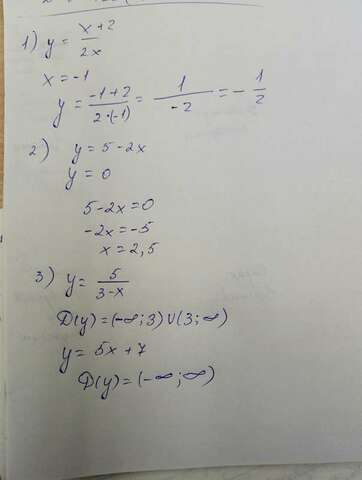 1) y = x+2 / 2x
x = -1
y = -1+2 / 2·(-1) = 1 / -2 = - 1/2
2) y = 5-2x
y = 0
5-2x=0
-2x=-5
x=2,5
3) y = 5 / 3-x
D(y)=(-∞;3)∪(3;∞)
y = 5x+7
D(y)=(-∞;∞)